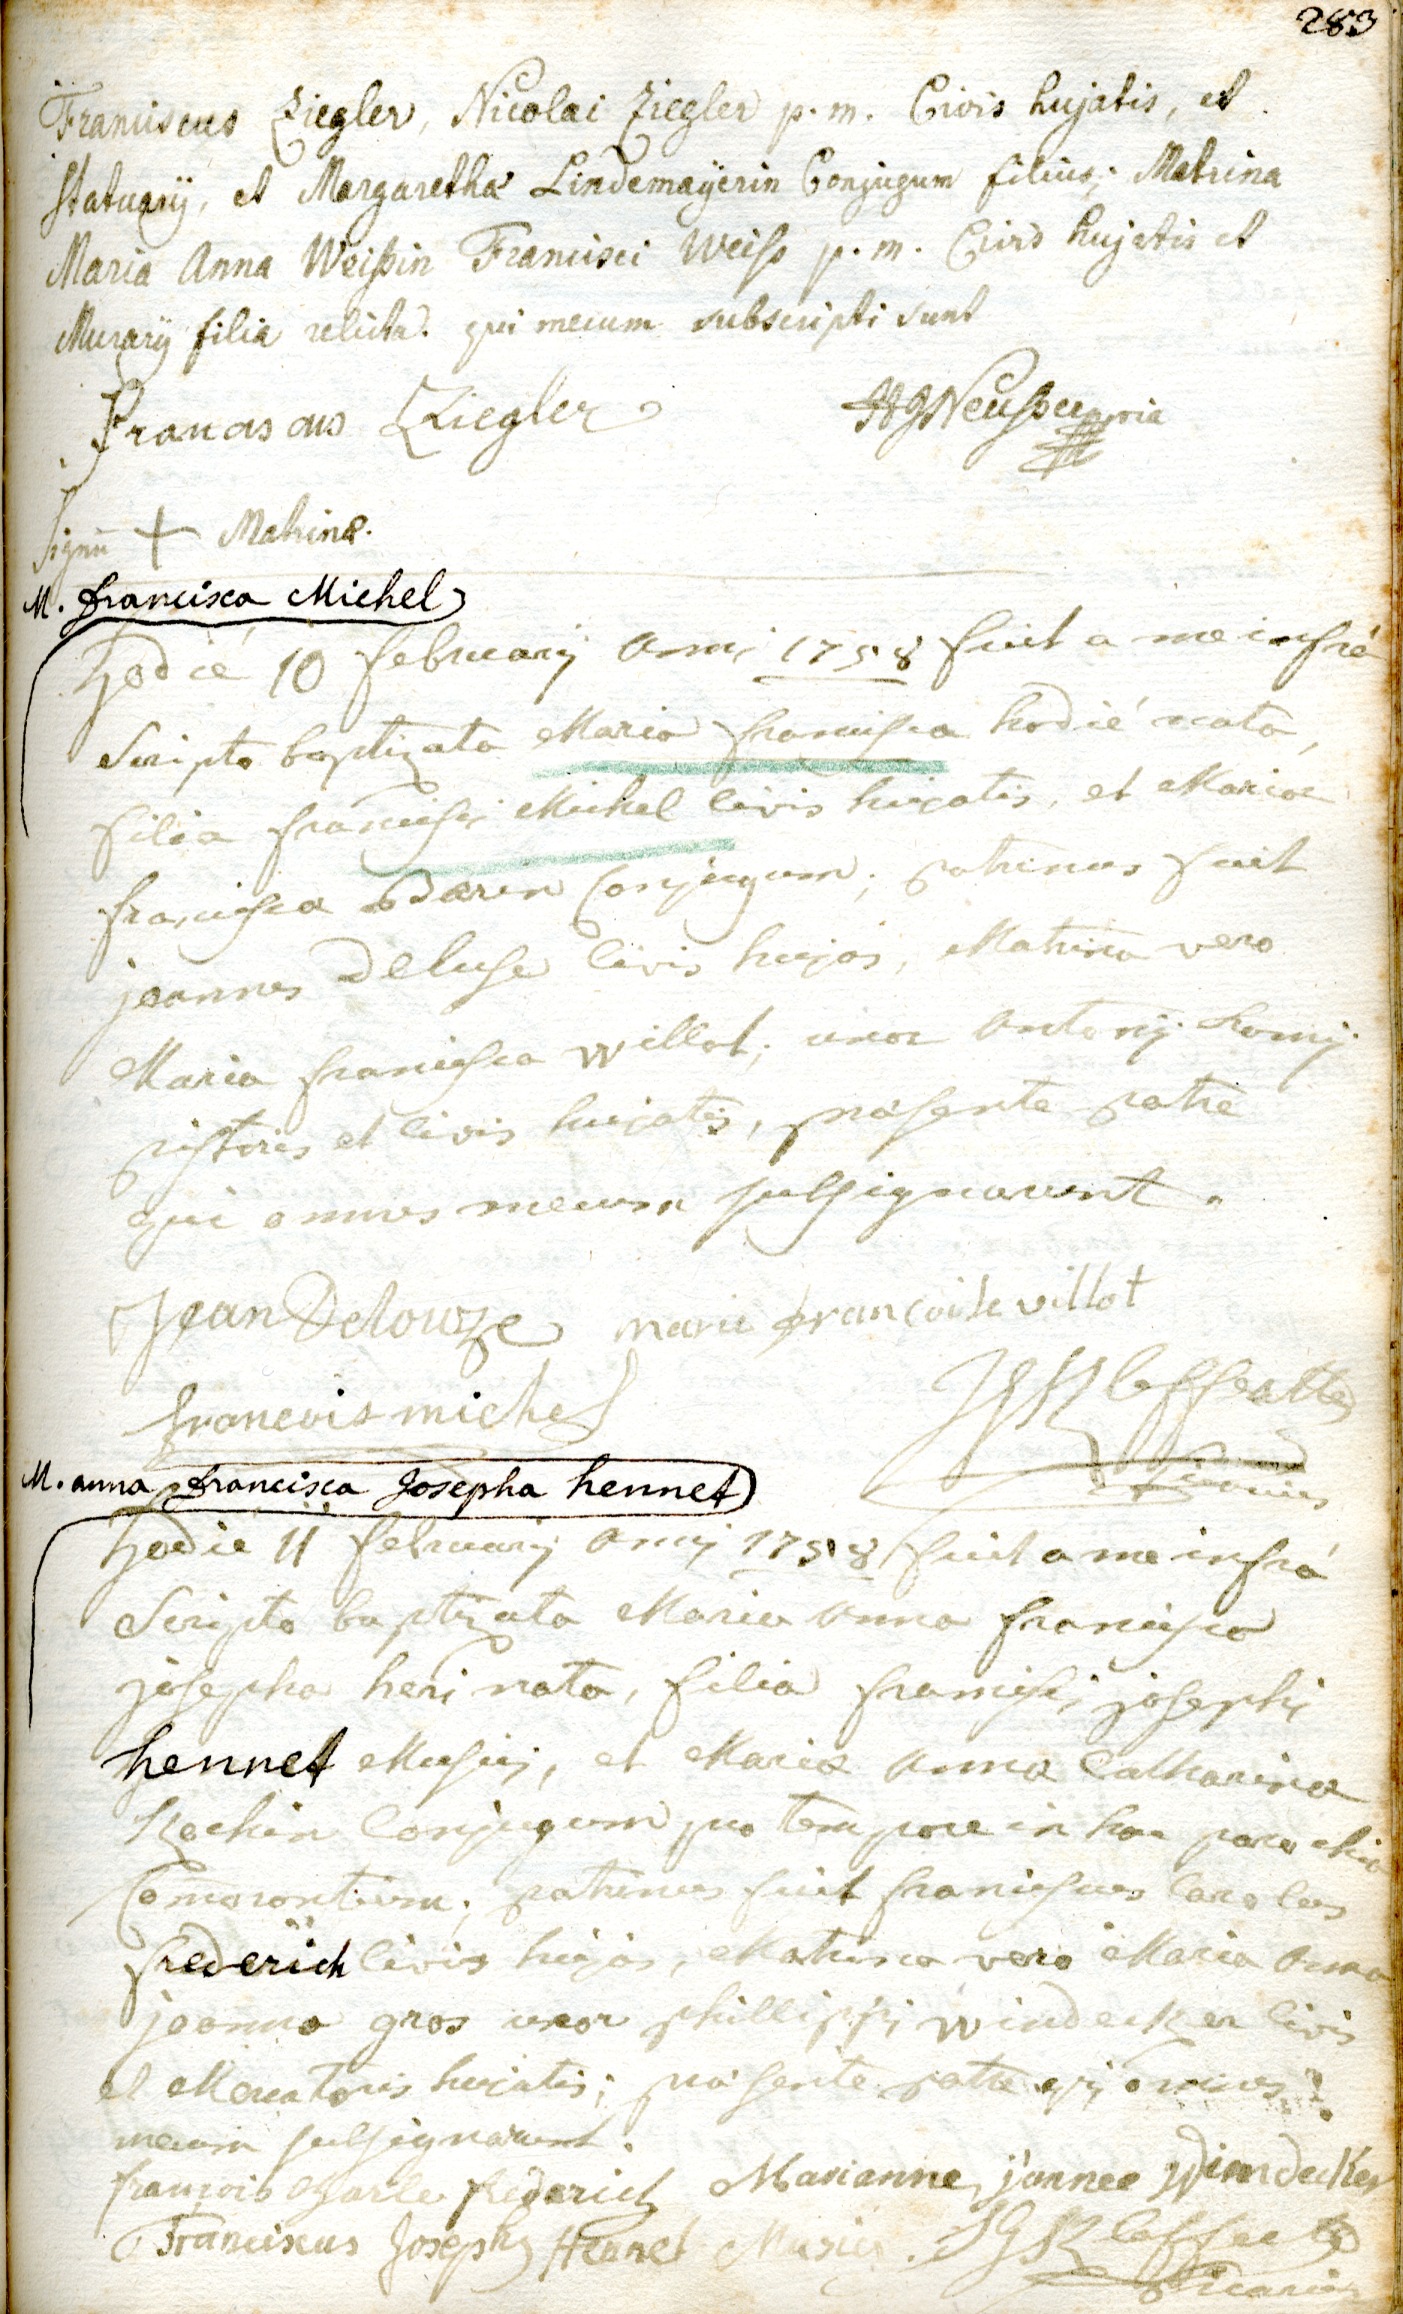 283
Franciscus Ziegler, Nicolai Ziegler p. m. Civis hujatis, et
statuarÿ, et Margaretha Lindemaÿerin Conjugum filius; Matrina
Maria Anna Weißin Francisci Weiss p. m. Civis hujatis et
Murarÿ filia relicta. qui mecum subscripti sunt
Franciscus Ziegler
Signū + Matrinæ.
M. francisca Michel
hodié 10 februarÿ anni 1758 fuit a me infrá
scripto baptizata Maria francisca hodié nata,
filia francisci Michel Civis hujatis, et Mariæ
franciscæ Conjugum; patrinus fuit
joannes Deluse Civis hujas, Matrina vero
Maria francisca Willot, uxor Antonÿ
pistoris et Civis hujatis, præsente patre
qui omnes mecum subsignarunt.
Jean Delouze marie françoise villot
francois michel
M. anna francisca Josepha hennet
hodie 11 februarÿ anni 1758 fuit a me infrá
scripto baptizata Maria anna francisca
josepha heri nata, filia francisci josephi
hennet Musici, et Mariæ Annæ Catharinæ
Kochin Conjugum pro tempore in hac parochia
Comorantium; patrinus fuit franciscus Carolus
frederich Civis hujas, Matrina vero Maria Anna
joanna gros uxor phillippi Windecker Civis
et Mercatoris hujatis; præsente patre qui omnes
mecum subsignarunt.
françois Charle frederich Marianne jannee Windecker
Franciscus Josephus Hennet Musicus.
Vicarius